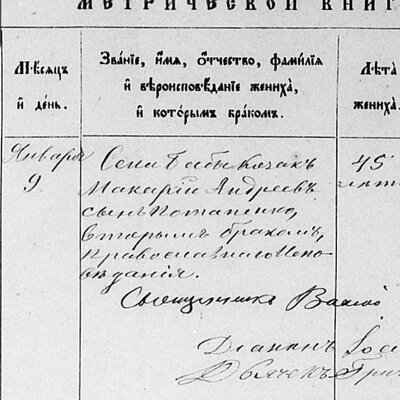 МЕТРИЧЕСКОЙ КНИГ
Мѣсяцъ и день.
Званіе, имя, отчество, фамилія и вѣроисповѣданіе жениха, и которымъ бракомъ.
Лѣта жениха.
Января 9.
Села Бабы Козакъ
Макарій Андреевъ
сынъ Потапенко,
вторымъ бракомъ,
Православнаго Испо-
вѣданія.
45 лѣтъ
Священникъ
Діаконъ
Дьячекъ